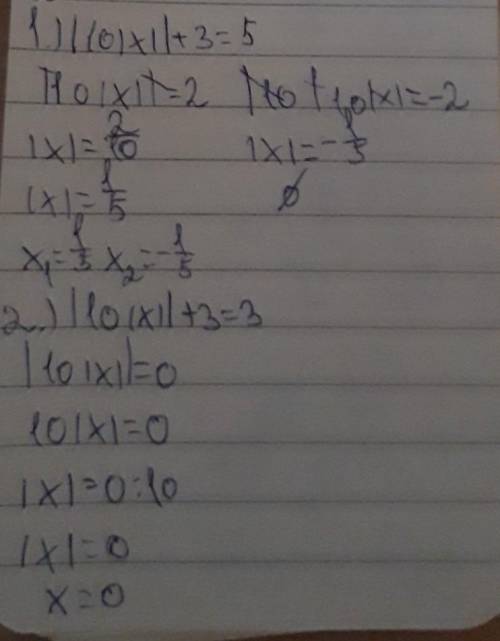 1.) |10|x||+3=5
10|x|=2 10|x|=-2
|x|=2/10 |x|=-1/5
|x|=1/5 ∅
x₁=1/5 x₂=-1/5
2.) |10|x||+3=3
|10|x||=0
10|x|=0
|x|=0:10
|x|=0
x=0